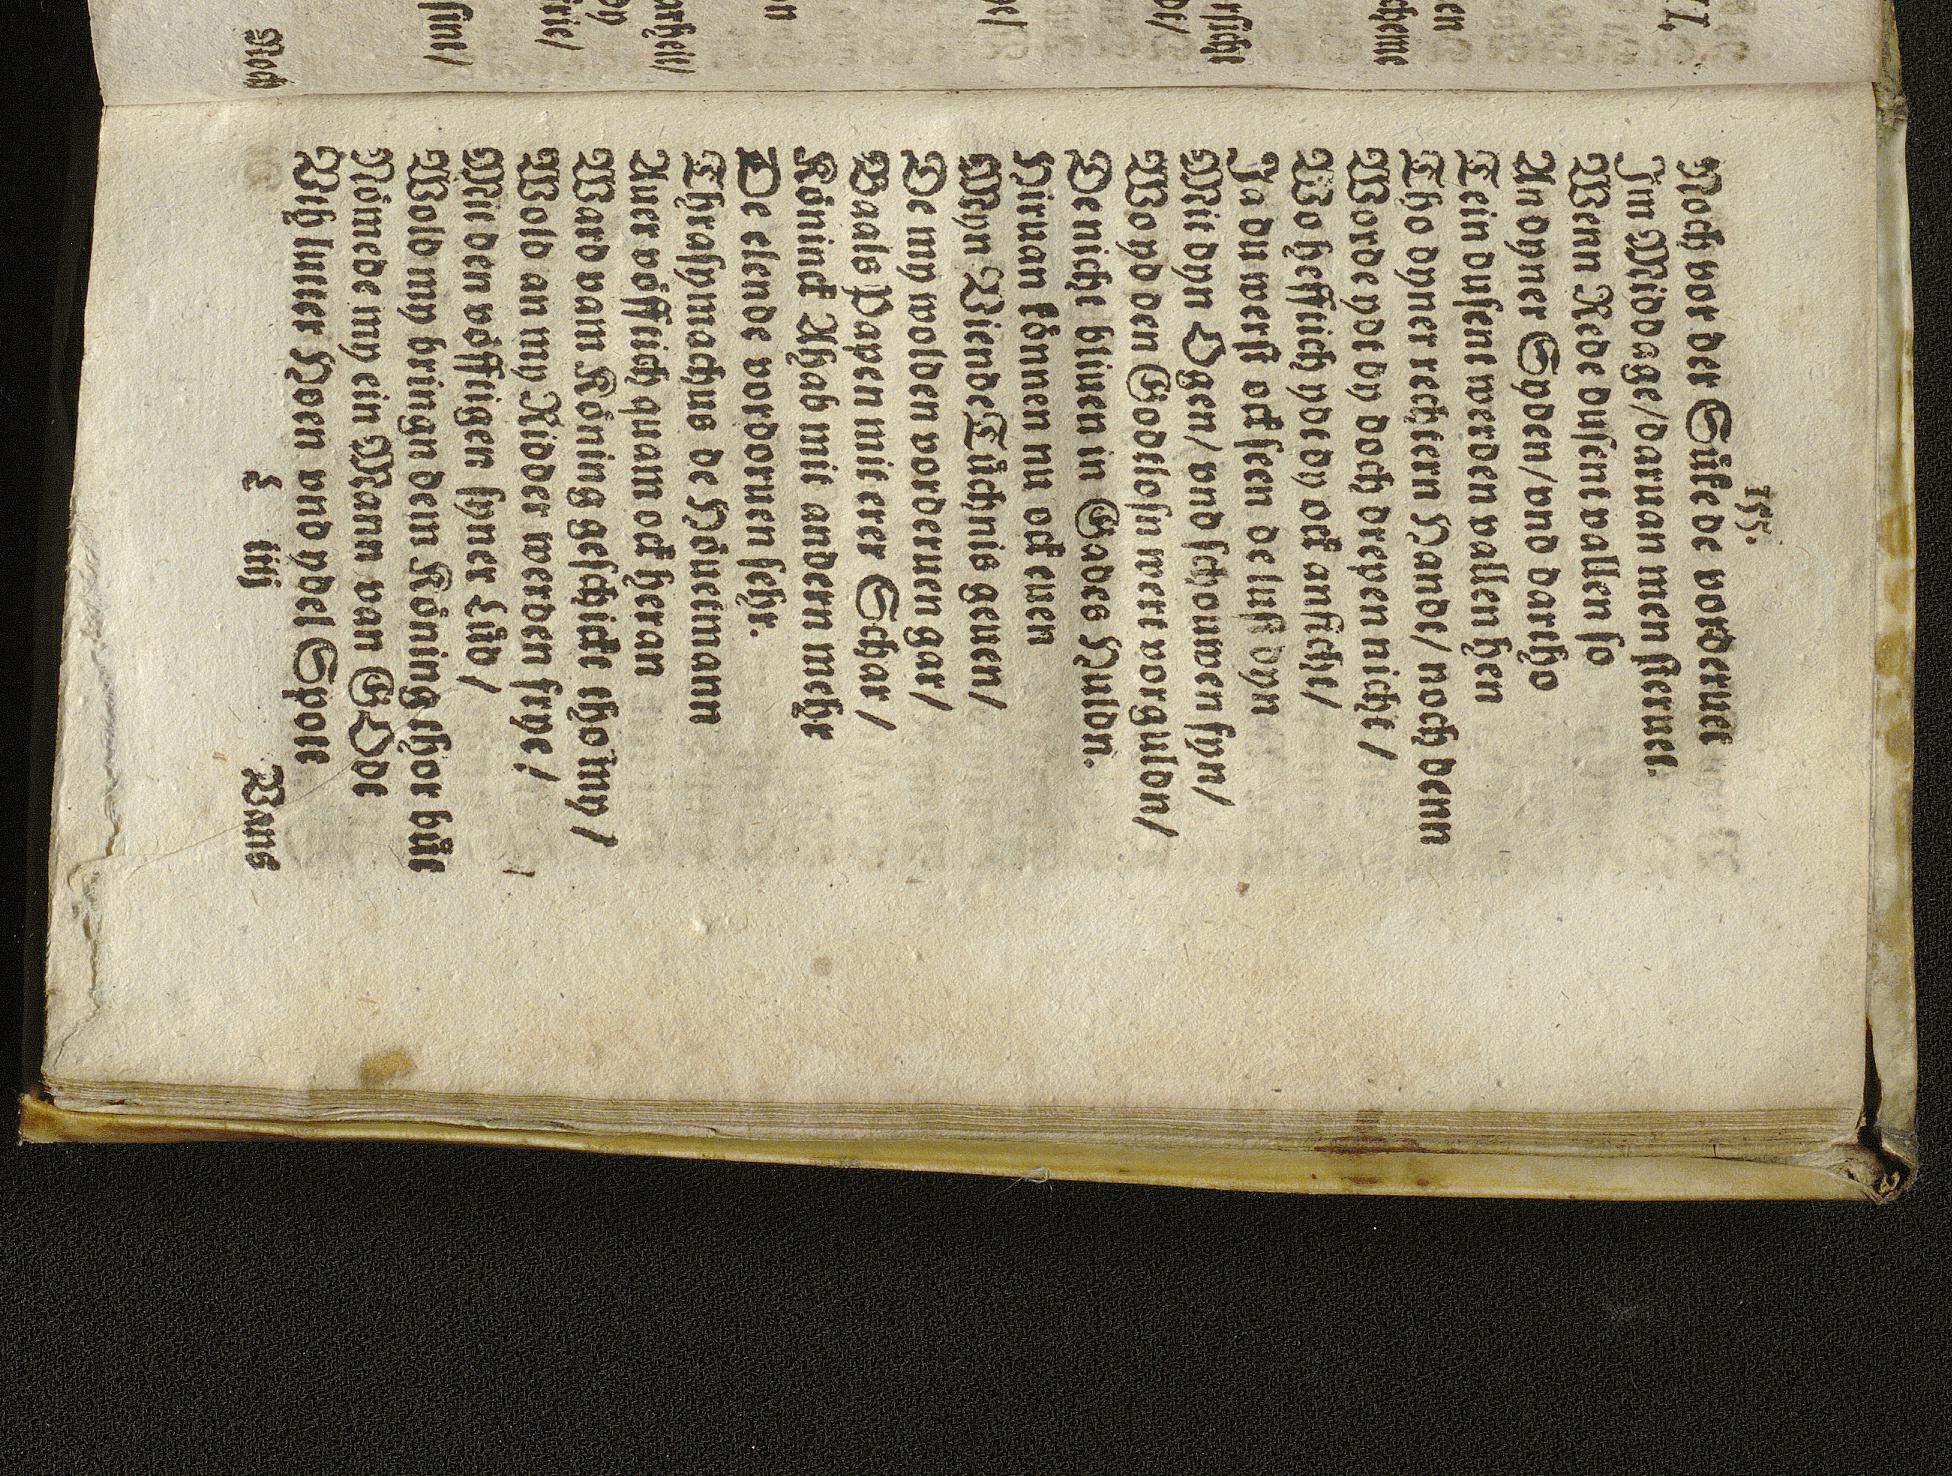 VI,
cheme
en
rsicht
de/
de/
n
arheit/
dy
frie/
sint/
Noch
155.
Noch vor der Süke de vorderuet
Jm Middage/daruan men steruet.
Wenn Rede dusent vallen so
An dyner Syden/vnd dartho
Tein dusent werden vallen hen
Tho dyner rechtern Hande/ noch denn
Worde ydt dy doch drepen nicht/
Wo hefftich yde dy ock anficht/
Ja du werst ock seen de lust dyn
Mit dyn Ogen/vnd schouwen fyn/
Wo yd den Godtlosn wert vorguldn/
De nicht bliuen in Gades Huldn.
Hiruan können nu ock euen
Myn Viende Tüchnis geuen/
De my wolden vorderuen gar/
Baals Papen mit erer Schar/
Köninck Ahab mit andern mehr
De elende vordoruen sehr.
Thrasymachus de Höuetmann
Auer vöfftich quam ock heran
Ward vam Köning geschickt tho my/
Wold an my Ridder werden frye/
Mit den vöfftigen syner Lüd/
Wold my bringn dem Köning thor büt
Nömede my ein Mann van GOdt
Vth luter Hoen vnd ydel Spott
L iiij
Vams